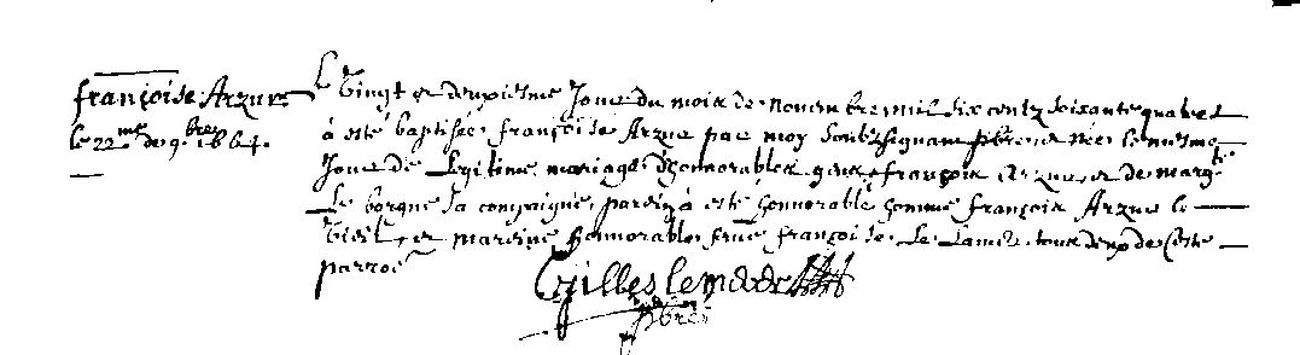 françoise Arzur
le 22me de 9.bre 1664.
Le Vingt et deuxiesme Jour du mois de novembre mil six centz soixante quatre
à esté baptisée françoise Arzur par moy soubzsignant pbre née le mesme
Jour de Legitime mariage d'honnorables gens françois Arzur et de marg.te
Le borgne sa compaigne, parein à esté honnorable homme françois Arzur le
Vieil, et mareine honnorable françoise Le Lamer tous deux de ceste
parroe
Gilles le
pbre